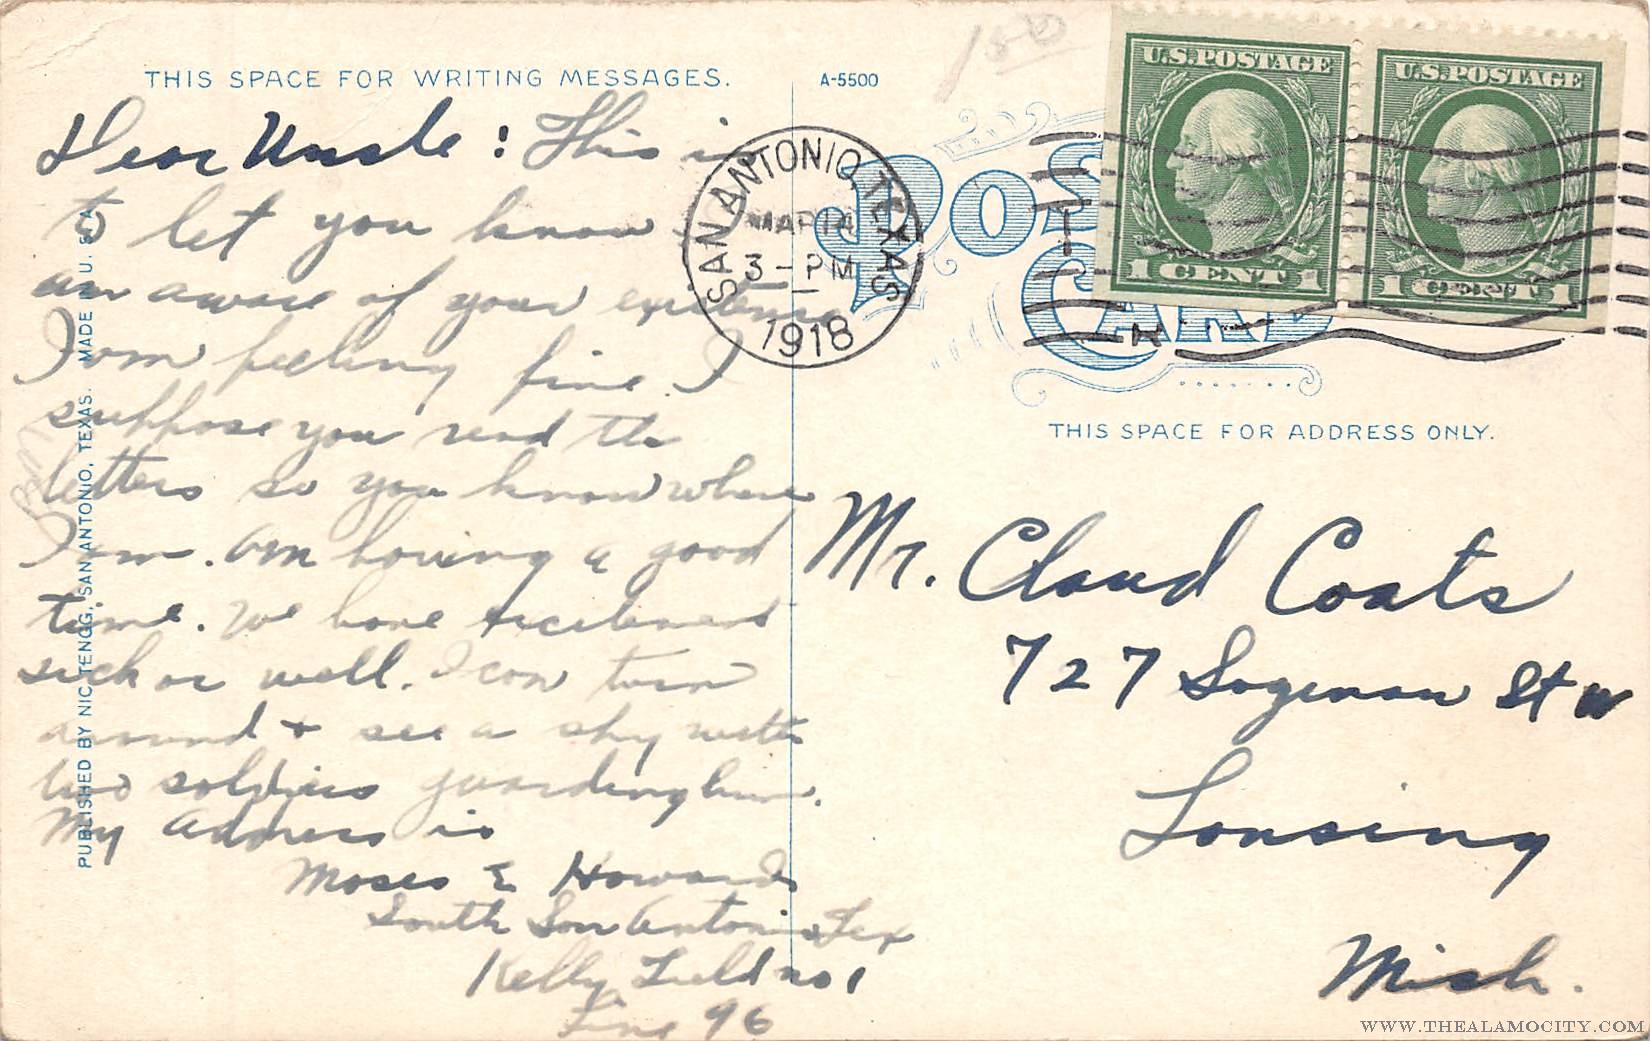 THIS SPACE FOR WRITING MESSAGES.
A-5500
150
Dear Uncle : This is
to let you know
am aware of your existence
I am feeling fine. I
suppose you read the
letters so you know where
I am. Am having a good
time. We have excitement
sick or well. I can turn
around + see a shy
two soldiers guarding him.
My Address is
Moses E Howard
South San Antonio Tex
Kelly Field no 1
Line 96
PUBLISHED BY NIC TENGG, SAN ANTONIO, TEXAS. MADE IN U. S. A.
SAN ANTONIO, TEXAS
MAR 14
3 - PM
1918
POST
CARD
U.S. POSTAGE
1 CENT 1
U.S. POSTAGE
1 CENT 1
THIS SPACE FOR ADDRESS ONLY.
Mr. Claud Coats
727 Sagenaw St W
Lansing
Mich.
WWW.THEALAMOCITY.COM